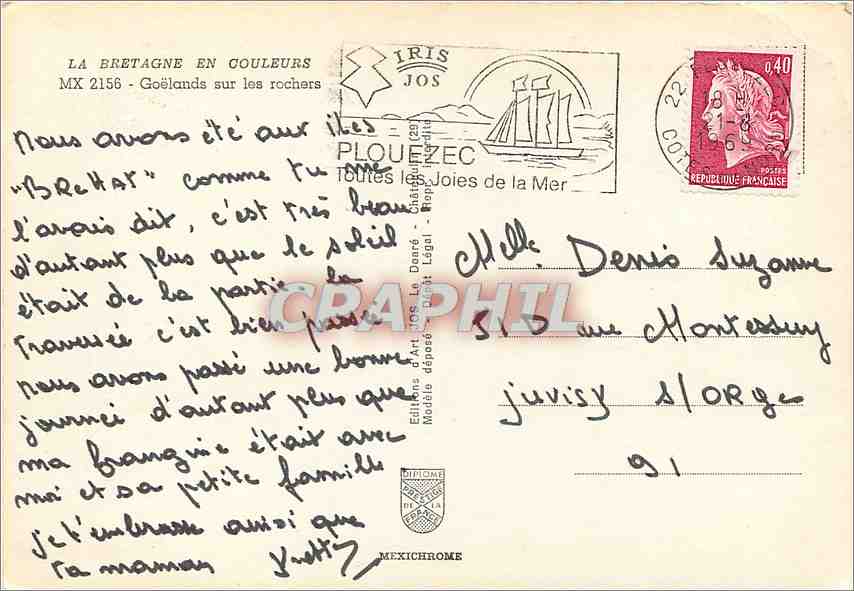 LA BRETAGNE EN COULEURS
MX 2156 - Goëlands sur les rochers
Nous avons été aux îles
"BREHAT" comme tu me
l'avais dit, c'est très beau
d'autant plus que le soleil
était de la partie la
traversée c'est bien passée
nous avons passé une bonne
journeé d'autant plus que
ma frangine était avec
moi et sa petite famille
je t'embrasse ainsi que
ta maman Yvette
IRIS
JOS
PLOUEZEC
Toutes les Joies de la Mer
22
18 H
1-8
19
COTES
0,40
POSTES
REPUBLIQUE FRANÇAISE
Editions d'Art JOS Le Doaré - Châteaulin (29)
Modèle déposé - Dépôt Légal - Repr. interdite
CPAPHIL
Melle Denis Suzanne
5, rue Montessuy
Juvisy s/ORge
91
DIPLOME
PRESTIGE
DE LA
FRANCE
MEXICHROME